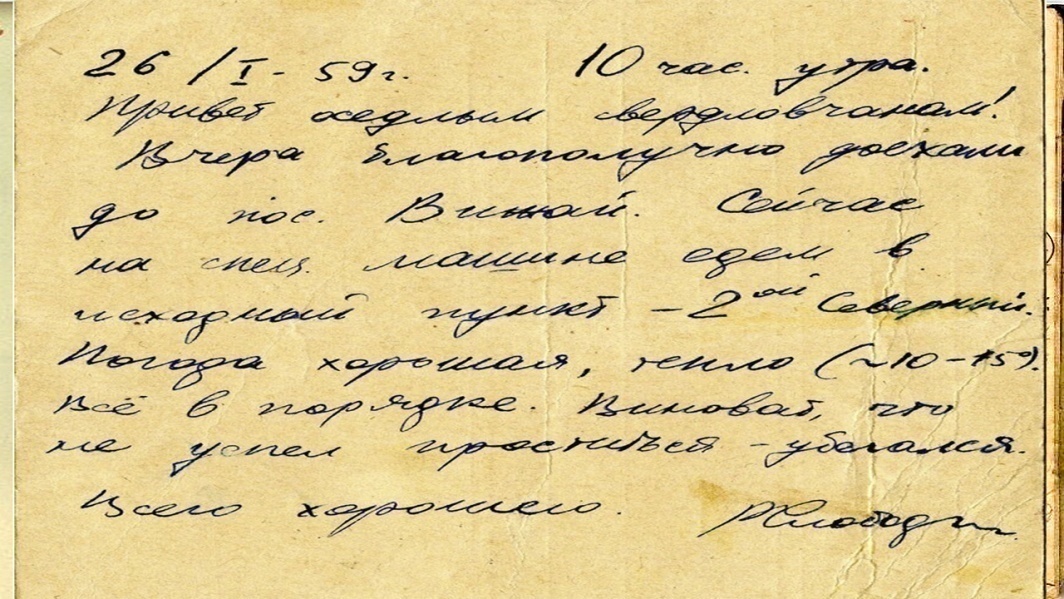 26/I - 59 г. 10 час. утра.
Привет оседлым свердловчанам!
Вчера благополучно доехали
до пос. Вижай. Сейчас
на спец. машине едем в
исходный пункт - 2ой Северный.
Погода хорошая, тепло (~10-15°).
Всё в порядке. Виноват, что
не успел проститься - убегался.
Всего хорошего. РСлободин